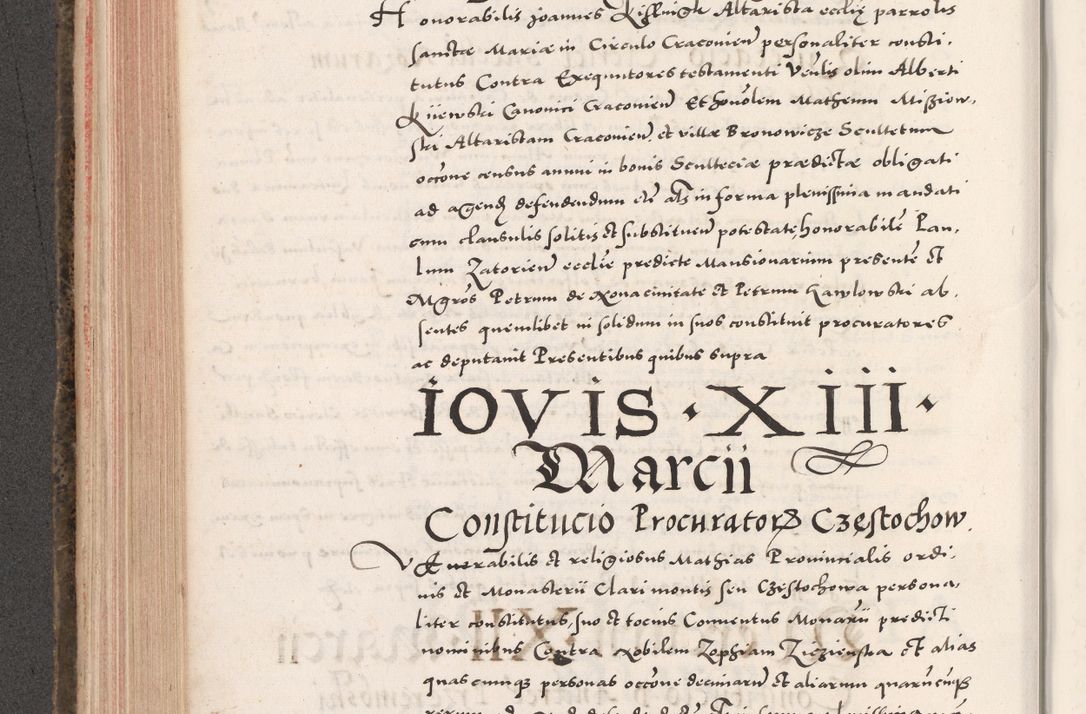 Honorabilis Joannes Kiślnigk Altarista ecclię parrolis
Sanctæ Mariæ in Circulo Cracovien personaliter consti-
tutus Contra Exequutores testamenti Venlis olim Alberti
Kijewski Canonici Cracovien Et honolem Matheum Misziow-
ski Altaristam Cracovien et villæ Bronowicze Scultetum
occone census annui in bonis Sculteciæ prædictæ obligati
ad agend defendendum etc als in forma plenissima mandati
cum clausulis solitis et substituen potestate, honorabile Pau-
lum Zatorien ecclie predicte Mansionarium presente et
Mgros Petrum de Novacivitate et Petrum Hawlowski ab-
sentes quemlibet in solidum in suos constituit procuratores
ac deputavit Presentibus quibus supra
IOVIS · XIII ·
Marcii
Constitucio Procurator Częstochow.
Venerabilis et religiosus Mathias Provincialis ordi-
nis et Monasterii Clari montis seu Częstochowa persona-
liter constitutus, suo et tocius Conventus Monarii predicti
nominibus Contra Nobilem Zophiam et alias
quascunque personas occone decimarum et aliarum quarucunque